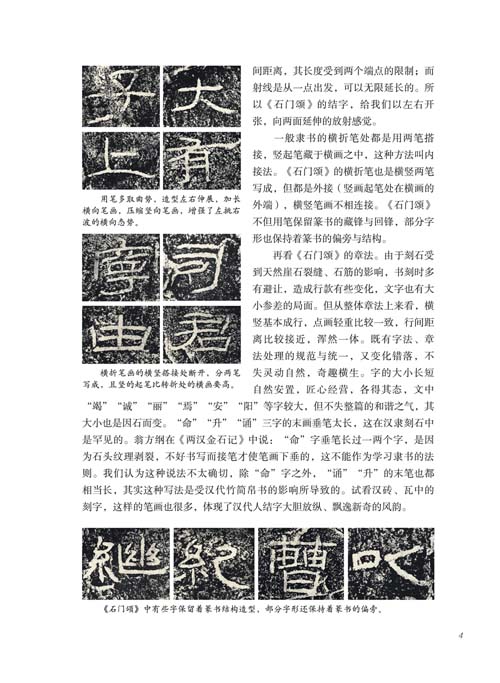 子 大
上 有
用笔多取曲势，造型左右伸展，加长
横向笔画，压缩竖向笔画，增强了左挑右
波的横向态势。
司
由 君
横折笔画的横竖搭接处断开，分两笔
写成，且竖的起笔比转折处的横画要高。
间距离，其长度受到两个端点的限制；而
射线是从一点出发，可以无限延长的。所
以《石门颂》的结字，给我们以左右开
张，向两面延伸的放射感觉。
一般隶书的横折笔处都是用两笔搭
接，竖起笔藏于横画之中，这种方法叫内
接法。《石门颂》的横折笔也是横竖两笔
写成，但都是外接（竖画起笔处在横画的
外端），横竖笔画不相连接。《石门颂》
不但用笔保留篆书的藏锋与回锋，部分字
形也保持着篆书的偏旁与结构。
再看《石门颂》的章法。由于刻石受
到天然崖石裂缝、石筋的影响，书刻时多
有避让，造成行款有些变化，文字也有大
小参差的局面。但从整体章法上来看，横
竖基本成行，点画轻重比较一致，行间距
离比较接近，浑然一体。既有字法、章
法处理的规范与统一，又变化错落，不
失灵动自然，奇趣横生。字的大小长短
自然安置，匠心经营，各得其态，文中
“竭”“诚”“丽”“焉”“安”“阳”等字较大，但不失整篇的和谐之气，其
大小也是因石而变。“命”“升”“诵”三字的末画垂笔太长，这在汉隶刻石中
是罕见的。翁方纲在《两汉金石记》中说：“命”字垂笔长过一两个字，是因
为石头纹理剥裂，不好书写而接笔才使笔画下垂的，这不能作为学习隶书的法
则。我们认为这种说法不太确切，除“命”字之外，“诵”“升”的末笔也都
相当长，其实这种写法是受汉代竹简帛书的影响所导致的。试看汉砖、瓦中的
刻字，这样的笔画也很多，体现了汉代人结字大胆放纵、飘逸新奇的风韵。
繼 絕 曹 以
《石门颂》中有些字保留着篆书结构造型，部分字形还保持着篆书的偏旁。
4